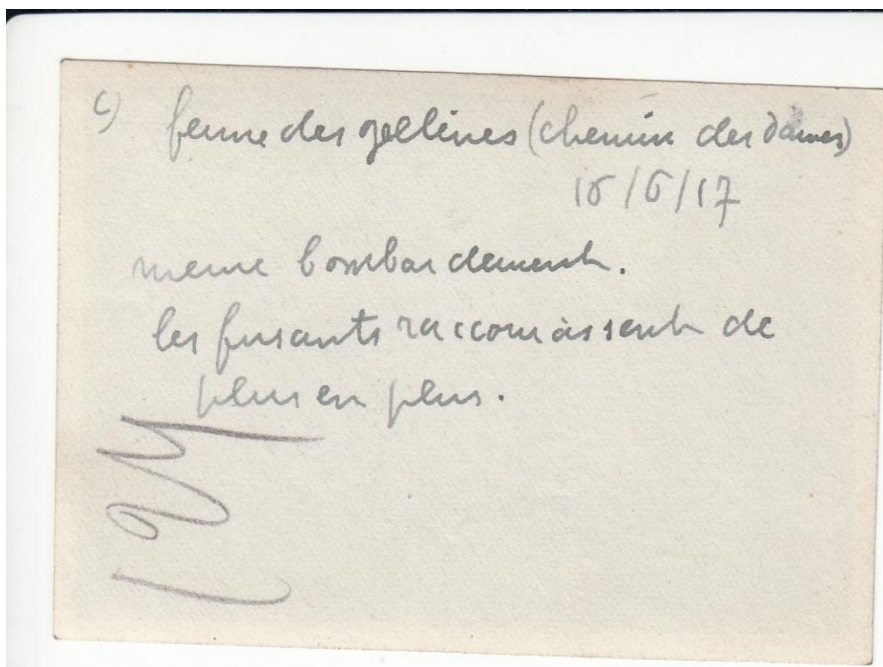 c) ferme des gellines (chemin des dames)
16/6/17
meme bombardement.
les fusants raccourcissent de
plus en plus.